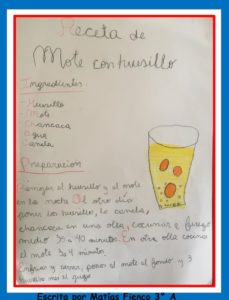 Receta de
Mote con huesillo
Ingredientes
- Huesillo
- Mote
- Chancaca
- Agua
- Canela
Preparacion
Remojar el huesillo y el mote
en la noche. Al otro día
poner los huesillo, la canela,
chancaca en una olla, cocinar a fuego
medio 35 a 40 minutos. En otra olla cocina
el mote 3 a 4 minutos.
Enfriar y servir, poner el mote al fondo y 3
huesillo más el jugo.
Escrita por Matías Fienco 3° A